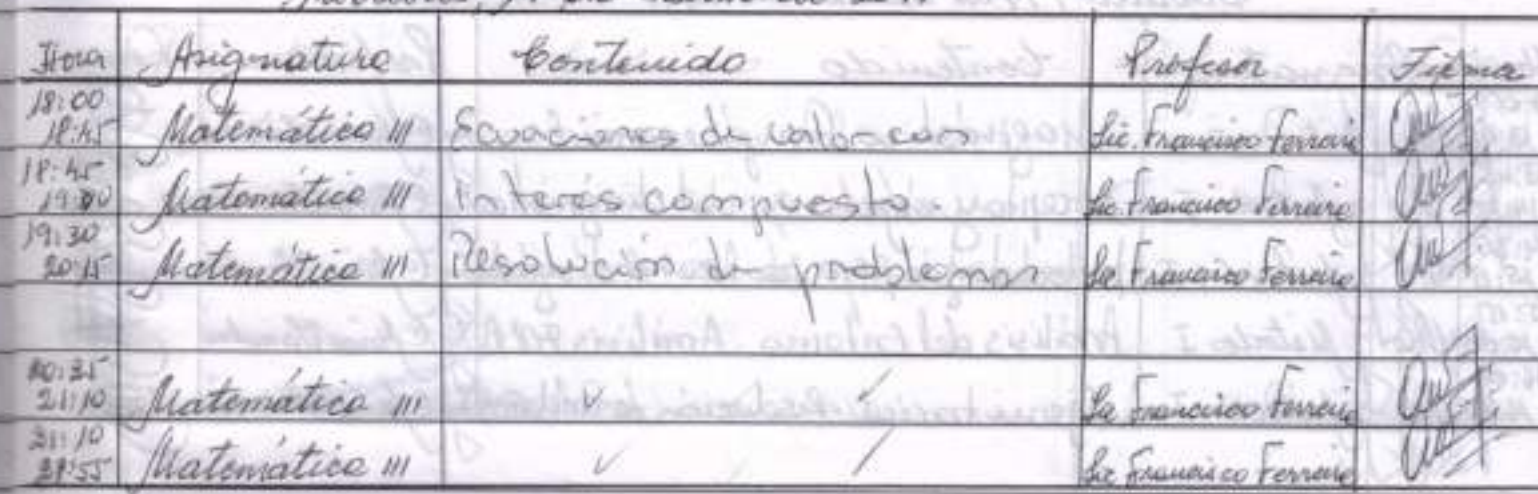 Hora Asignatura Contenido Profesor Firma
18:00 18:45 Matemática III Ecuaciones de valor con Lic. Francisco Ferreira
18:45 Matemática III Interés compuesto. Lic. Francisco Ferreira
19:30 20:15 Matemática III Resolución de problemas Lic. Francisco Ferreira
20:35 21:10 Matemática III Lic. Francisco Ferreira
21:10 21:55 Matemática III Lic. Francisco Ferreira